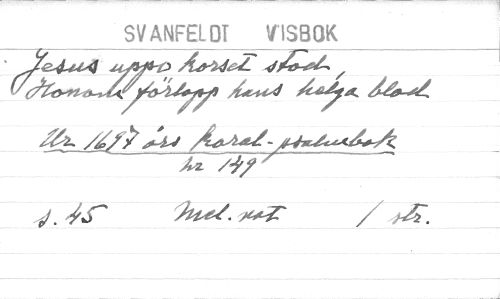 SVANFELDT VISBOK
Jesus uppo korset stod,
Honom förlopp hans helga blod
Ur 1697 års koral-psalmbok
nr 149
s. 45 Mel. not 1 str.